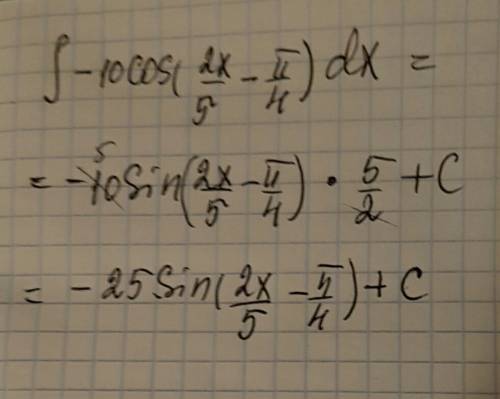 ∫ -10cos(2x/5 - π/4) dx =
5
= -10Sin(2x/5 - π/4) · 5/2 + C
= -25Sin(2x/5 - π/4) + C